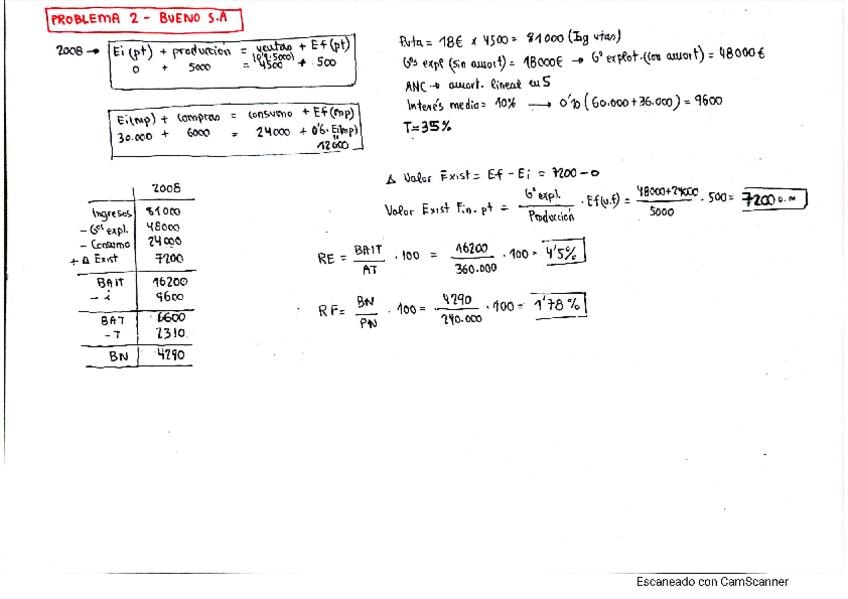 PROBLEMA 2 - BUENO S.A
2008 → Ei (pt) + producción = ventas + Ef (pt)
(0'9·5000)
0 + 5000 = 4500 + 500
Ei(mp) + compras = consumo + Ef(mp)
30.000 + 6000 = 24000 + 0'6·Ei(mp)
12000
Pvta = 18€ x 4500 = 81000 (Ing vtas)
Gºs expl (sin amort) = 18000€ → Gº explot. (con amort) = 48000€
ANC → amort. lineal en 5
Interés medio = 10% → 0'10 (60.000 + 36.000) = 9600
T = 35%
Δ Valor Exist = Ef - Ei = 7200 - 0
Valor Exist Fin. pt = Gº expl. / Producción · Ef(u.f) = 48000+24000 / 5000 · 500 = 7200 u.m
RE = BAIT / AT · 100 = 16200 / 360.000 · 100 = 4'5%
RF = BN / PN · 100 = 4290 / 240.000 · 100 = 1'78%
2008
Ingresos 81000
- Gºs expl. 48000
- Consumo 24000
+ Δ Exist 7200
BAIT 16200
- i 9600
BAT 6600
- T 2310
BN 4290
Escaneado con CamScanner